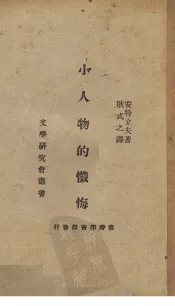 安特立夫著
耿式之譯
小人物的懺悔
文學研究會叢書
商務印書館發行